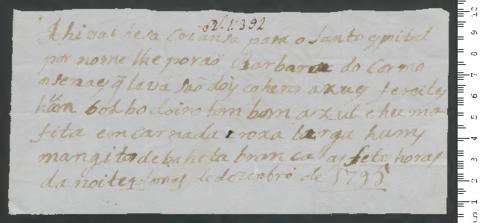 N. 1392
Ahi vai hesa Coransa para o Santo ospital
por nome lhe porão Barbara do Carmo
o senaes q leva são dois coheros azues
hum bolço doiro tem bom azul e huma
fita em carnada roxa larga huns
mangito de baheta branca as sete horas
da noite de dezenbro de 1795